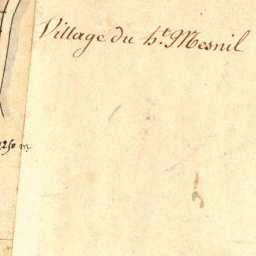 Village du h.t Mesnil
250 m